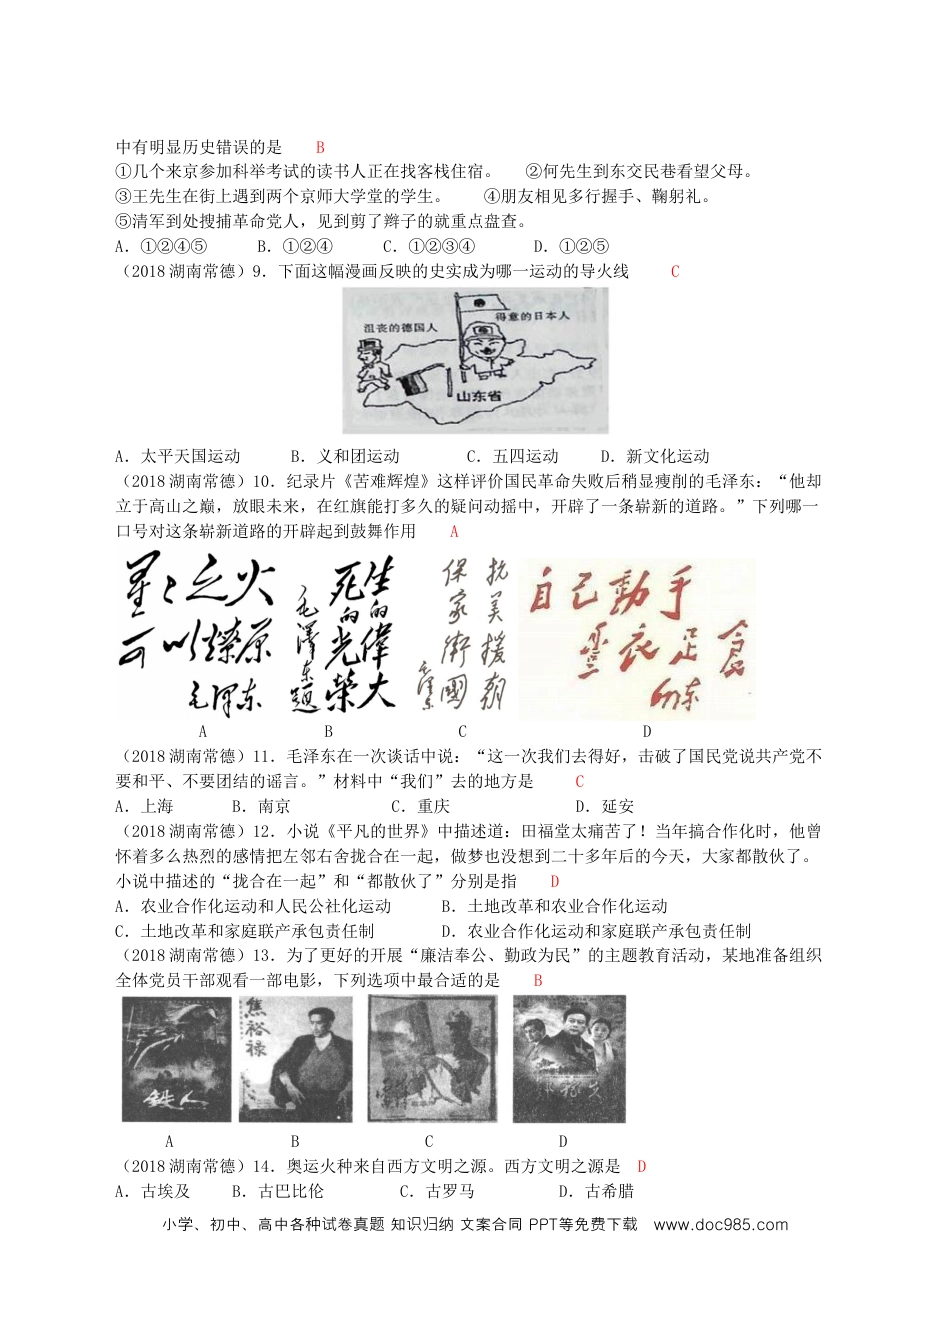 中有明显历史错误的是 B
①几个来京参加科举考试的读书人正在找客栈住宿。 ②何先生到东交民巷看望父母。
③王先生在街上遇到两个京师大学堂的学生。 ④朋友相见多行握手、鞠躬礼。
⑤清军到处搜捕革命党人，见到剪了辫子的就重点盘查。
A．①②④⑤ B．①②④ C．①②③④ D．①②⑤
（2018 湖南常德）9．下面这幅漫画反映的史实成为哪一运动的导火线 C
沮丧的德国人 得意的日本人
山东省
A．太平天国运动 B．义和团运动 C．五四运动 D．新文化运动
（2018 湖南常德）10．纪录片《苦难辉煌》这样评价国民革命失败后稍显瘦削的毛泽东：“他却
立于高山之巅，放眼未来，在红旗能打多久的疑问动摇中，开辟了一条崭新的道路。”下列哪一
口号对这条崭新道路的开辟起到鼓舞作用 A
星星之火
可以燎原
毛泽东
生的偉大
死的光榮
毛澤東題
抗美援朝
保家衛國
毛澤東
自己動手
豐衣足食
A B C D
（2018 湖南常德）11．毛泽东在一次谈话中说：“这一次我们去得好，击破了国民党说共产党不
要和平、不要团结的谣言。”材料中“我们”去的地方是 C
A．上海 B．南京 C．重庆 D．延安
（2018 湖南常德）12．小说《平凡的世界》中描述道：田福堂太痛苦了！当年搞合作化时，他曾
怀着多么热烈的感情把左邻右舍拢合在一起，做梦也没想到二十多年后的今天，大家都散伙了。
小说中描述的“拢合在一起”和“都散伙了”分别是指 D
A．农业合作化运动和人民公社化运动 B．土地改革和农业合作化运动
C．土地改革和家庭联产承包责任制 D．农业合作化运动和家庭联产承包责任制
（2018 湖南常德）13．为了更好的开展“廉洁奉公、勤政为民”的主题教育活动，某地准备组织
全体党员干部观看一部电影，下列选项中最合适的是 B
铁人
焦裕禄
A B C D
（2018 湖南常德）14．奥运火种来自西方文明之源。西方文明之源是 D
A．古埃及 B．古巴比伦 C．古罗马 D．古希腊
小学、初中、高中各种试卷真题 知识归纳 文案合同 PPT等免费下载 www.doc985.com